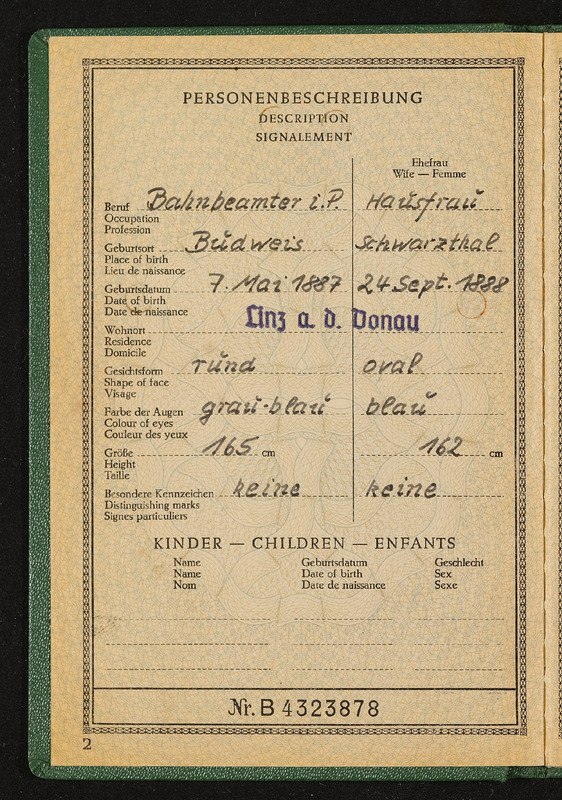 PERSONENBESCHREIBUNG
DESCRIPTION
SIGNALEMENT
Ehefrau
Wife — Femme
Beruf Bahnbeamter i.P. Hausfrau
Occupation
Profession
Geburtsort Budweis Schwarzthal
Place of birth
Lieu de naissance
Geburtsdatum 7. Mai 1887 24 Sept. 1888
Date of birth
Date de naissance
Linz a. d. Donau
Wohnort
Residence
Domicile
Gesichtsform rund oval
Shape of face
Visage
Farbe der Augen grau-blau blau
Colour of eyes
Couleur des yeux
Größe 165 cm 162 cm
Height
Taille
Besondere Kennzeichen keine keine
Distinguishing marks
Signes particuliers
KINDER — CHILDREN — ENFANTS
Name Geburtsdatum Geschlecht
Name Date of birth Sex
Nom Date de naissance Sexe
Nr. B 4323878
2